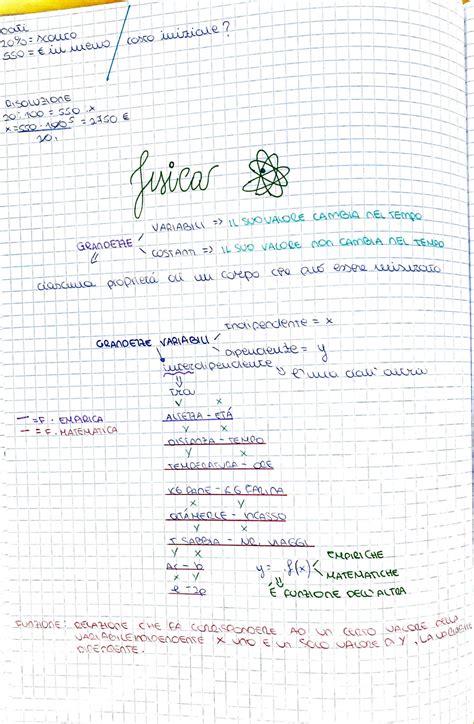 Dati
20% = sconto
550 = € in meno
costo iniziale?
RISOLUZIONE
20 : 100 = 550 : x
x = 550 · 100 = 2750 €
20
fisica
GRANDEZZE
VARIABILI => IL SUO VALORE CAMBIA NEL TEMPO
COSTANTI => IL SUO VALORE NON CAMBIA NEL TEMPO
ciascuna proprietà di un corpo che può essere misurato
GRANDEZZE VARIABILI
indipendente = x
dipendente = y
interdipendente
è una dall'altra
tra
Y X
ALTEZZA - ETÀ
Y X
DISTANZA - TEMPO
Y X
TEMPERATURA - ORE
KG PANE - KG FARINA
X Y
QTÀ MERCE - INCASSO
Y X
T SABBIA - NR. VIAGGI
Y X
X Y
— = F. EMPIRICA
— = F. MATEMATICA
y = f(x)
EMPIRICHE
MATEMATICHE
È FUNZIONE DELL'ALTRA
FUNZIONE: RELAZIONE CHE FA CORRISPONDERE AD UN CERTO VALORE DELLA
VARIABILE INDIPENDENTE X UNO E UN SOLO VALORE DI Y, LA VARIABILE
DIPENDENTE.